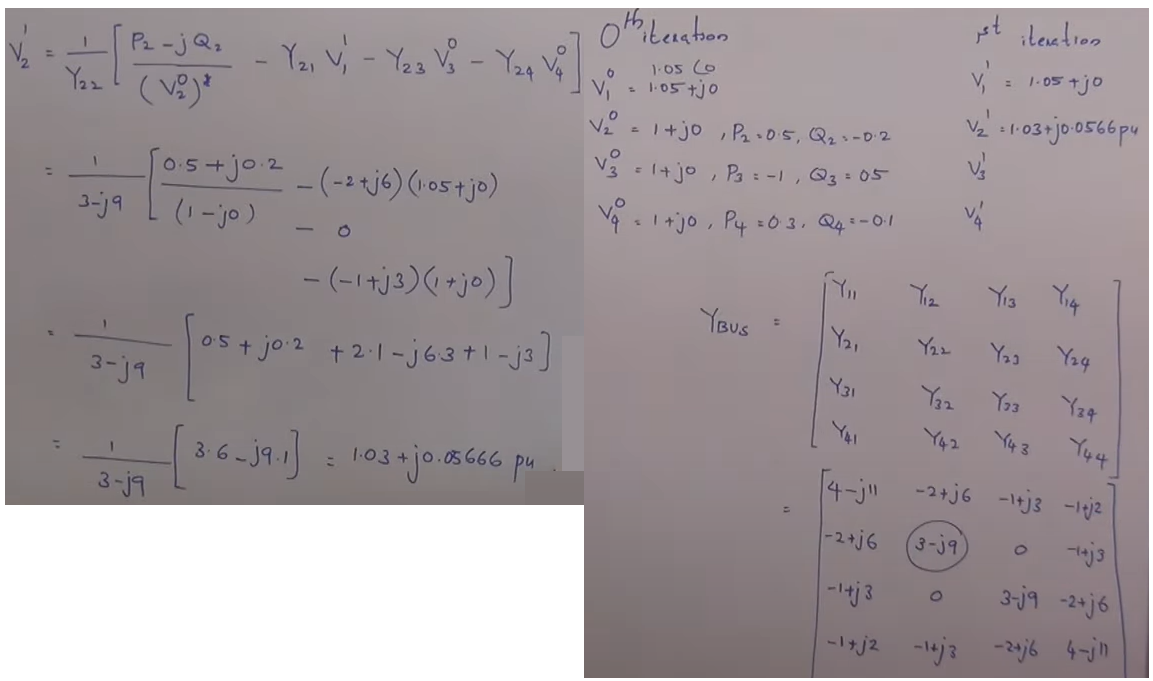 V₂¹ = 1/Y₂₂ [ (P₂ - jQ₂)/(V₂⁰)* - Y₂₁ V₁¹ - Y₂₃ V₃⁰ - Y₂₄ V₄⁰ ]
= 1/(3-j9) [ (0.5+j0.2)/(1-j0) - (-2+j6)(1.05+j0)
- 0
- (-1+j3)(1+j0) ]
= 1/(3-j9) [ 0.5+j0.2 +2.1-j6.3+1-j3 ]
= 1/(3-j9) [ 3.6-j9.1 ] = 1.03+j0.05666 pu.
0th iteration
1.05 ∠0
V₁⁰ = 1.05+j0
V₂⁰ = 1+j0, P₂=0.5, Q₂=-0.2
V₃⁰ = 1+j0, P₃=-1, Q₃=05
V₄⁰ = 1+j0, P₄=0.3, Q₄=-0.1
1st iteration
V₁¹ = 1.05+j0
V₂¹ = 1.03+j0.0566pu
V₃¹
V₄¹
Y_BUS =
Y₁₁ Y₁₂ Y₁₃ Y₁₄
Y₂₁ Y₂₂ Y₂₃ Y₂₄
Y₃₁ Y₃₂ Y₃₃ Y₃₄
Y₄₁ Y₄₂ Y₄₃ Y₄₄
=
4-j11 -2+j6 -1+j3 -1+j2
-2+j6 3-j9 0 -1+j3
-1+j3 0 3-j9 -2+j6
-1+j2 -1+j3 -2+j6 4-j11